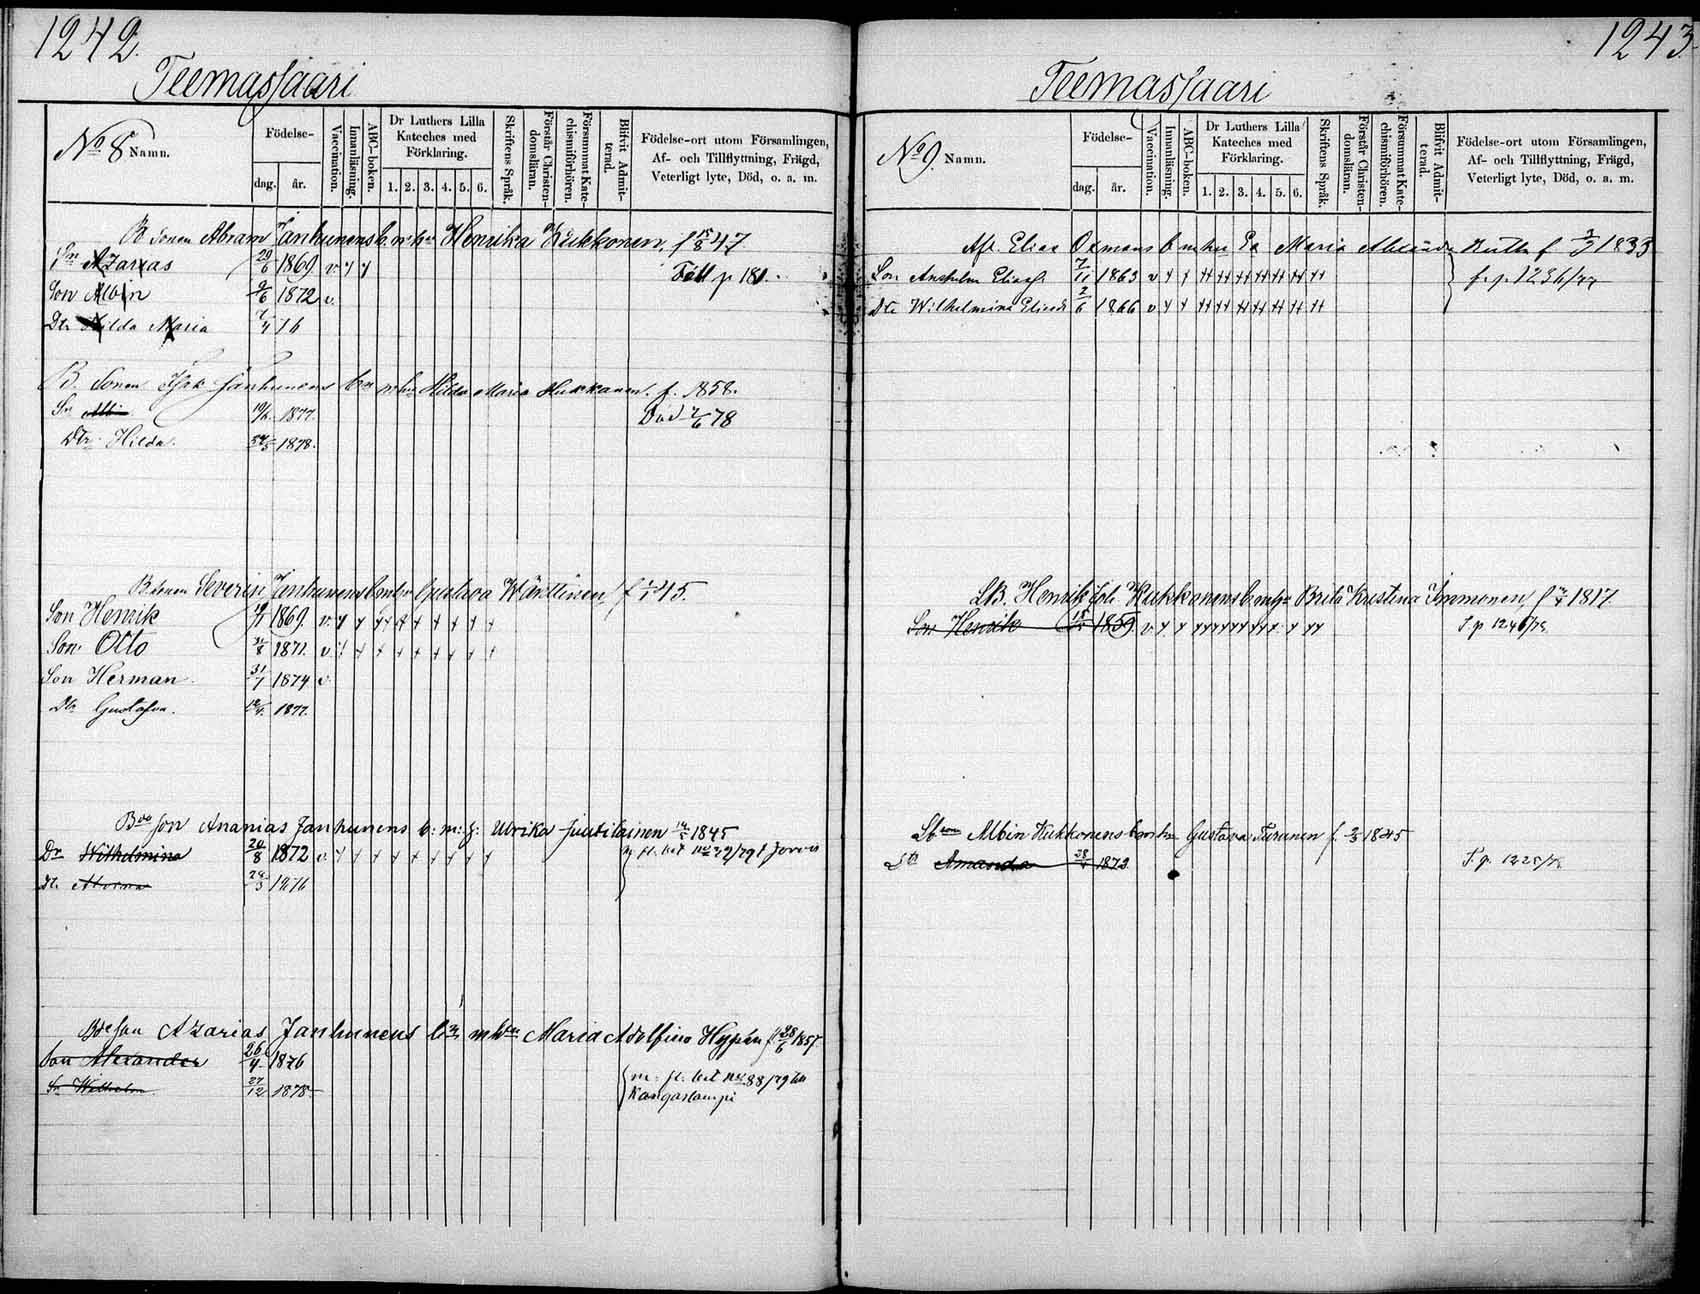 1242.
Teemassaari
No 8 Namn.
Födelse-
dag. år.
Vaccination.
Innanläsning.
ABC-boken.
Dr Luthers Lilla
Kateches med
Förklaring.
1. 2. 3. 4. 5. 6.
Skriftens Språk.
Förstår Christen-
domsläran.
Försummat Kate-
chismiförhören.
Blifvit Admit-
terad.
Födelse-ort utom Församlingen,
Af- och Tillflyttning, Frägd,
Veterligt lyte, Död, o. a. m.
B sonen Abram Janhunens b. m. hu Henrika Kukkonen, f 15/8 47
Sn Azarias 29/6 1869 v
p 181.
Son Albin 9/6 1872 v.
Dtr Hilda Maria 76
B. Sonen Isak Janhunens bn m hu Hilda Maria Kukkanen. f. 1858.
Sn 1877. Död 78
Dtr Hilda. 1878.
B sonen Severin Janhunens b m hu Gustava Wänttinen, f 45.
Son Henrik 1869. v
Son. Otto 1871. v
Son Herman. 31/1 1874 v
Dtr Gustafva. 1877.
Bde son Ananias Janhunens b: m: h: Ulrika Juutilainen 1845
Dr Wilhelmina 20/8 1872 v
Dt. Alvina 24/3 1876
Bde son Azarias Janhunens bn m hun Maria Adolfina Hyppön f 28/6 1857
Son Alexander 26/4 1876
Sn Wilhelm 27/12 1878
m. fl. bet No 88/79 till
Kangaslampi
1243.
Teemassaari
No 9. Namn.
Födelse-
dag. år.
Vaccination.
Innanläsning.
ABC-boken.
Dr Luthers Lilla
Kateches med
Förklaring.
1. 2. 3. 4. 5. 6.
Skriftens Språk.
Förstår Christen-
domsläran.
Försummat Kate-
chismiförhören.
Blifvit Admit-
terad.
Födelse-ort utom Församlingen,
Af- och Tillflyttning, Frägd,
Veterligt lyte, Död, o. a. m.
Afl. Elias b m hu Maria f 1833
Son Anshelm Eliass. 7/11 1863 v
Dtr Wilhelmina Eliasdr 2/6 1866 v
LB. Henrik Joh Kukkonens b m hu Brita Kristina Immonen, f 1817.
Son Henrik 1859 v
Lb son Albin Kukkonens b m hu Gustava Turunen f. 2/3 1845
Dtr Amanda 1873